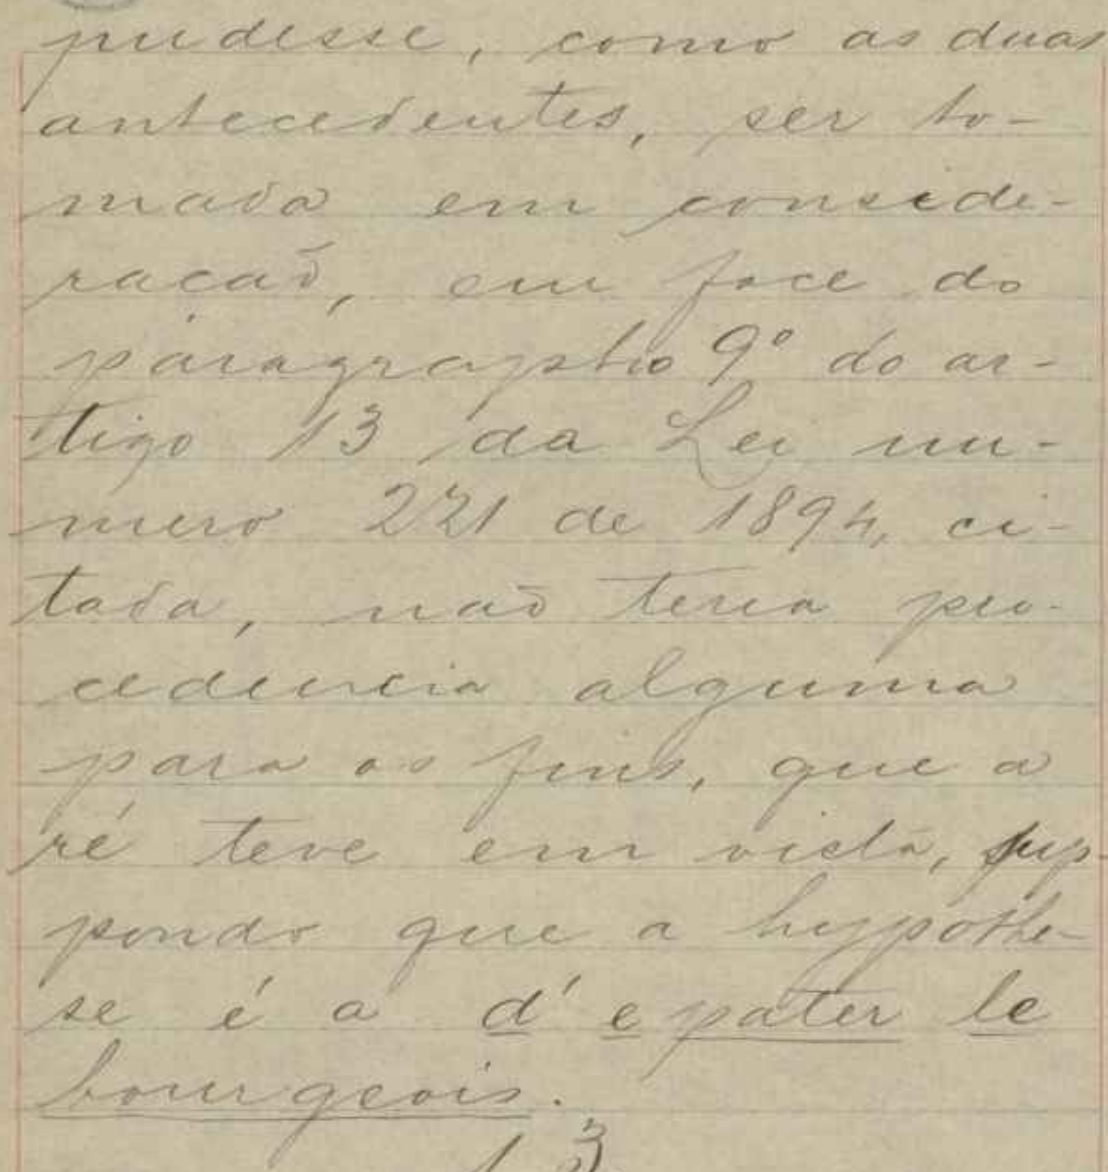 pudesse, como as duas
antecedentes, ser to-
mada em conside-
racaõ, em face do
paragrapho 9º do ar-
tigo 13 da Lei nu-
mero 221 de 1894, ci-
tada, naõ teria pro-
cedencia alguma
para os fins, que a
ré teve em vista, sup-
pondo que a hypothe-
se é a d'epater le
bourgeois.
13